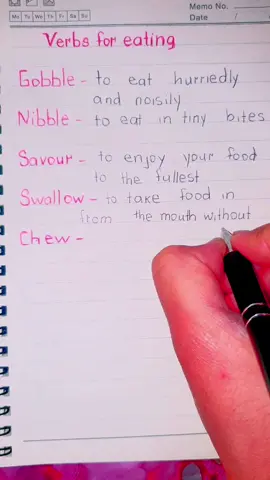 Memo No.
Mo Tu We Th Fr Sa Su
Date /
Verbs for eating
Gobble - to eat hurriedly
and noisily
Nibble - to eat in tiny bites
Savour - to enjoy your food
to the fullest
Swallow - to take food in
from the mouth without
Chew -